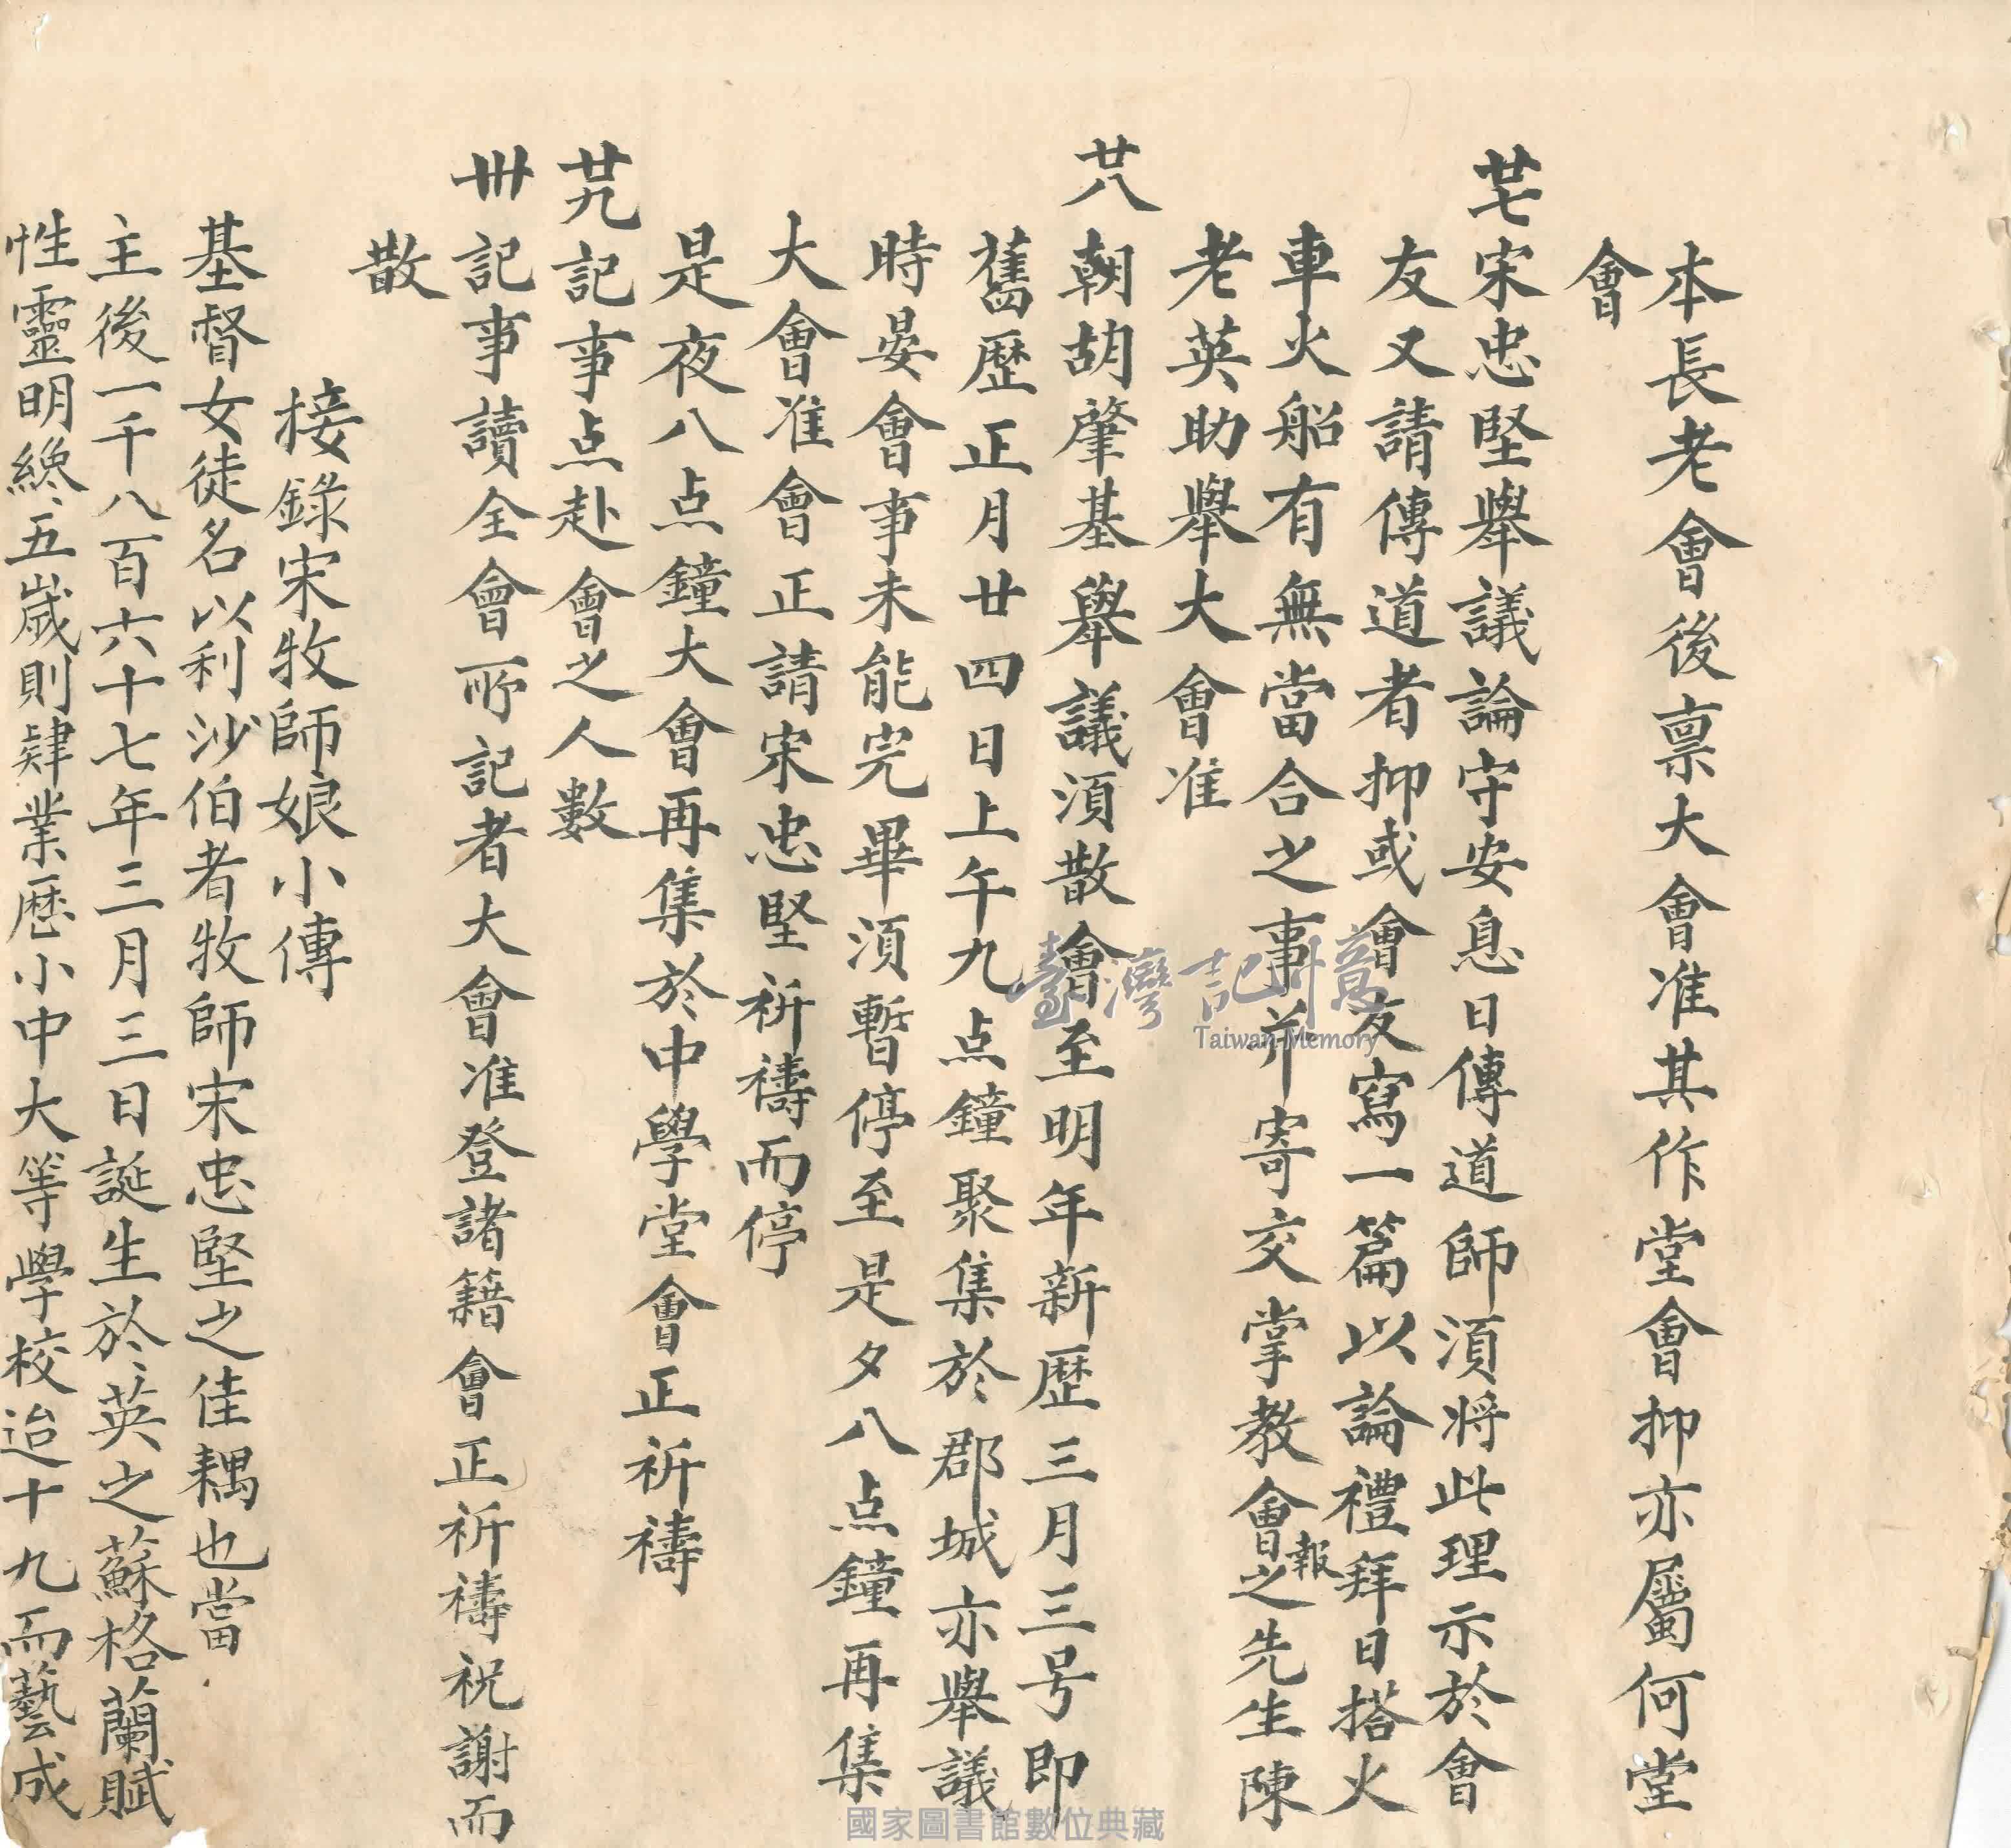 本長老會後禀大會准其作堂會抑亦屬何堂
會
廿七宋忠堅舉議論守安息日傳道師須將此理示於會
友又請傳道者抑或會友寫一篇以論禮拜日搭火
車火船有無當合之事並寄交掌教會報之先生陳
老英助舉大會准
廿八朝胡肇基舉議須散會至明年新歷三月三号即
舊歷正月廿四日上午九点鐘聚集於郡城亦舉議
時晏會事未能完畢須暫停至是夕八点鐘再集
大會准會正請宋忠堅祈禱而停
是夜八点鐘大會再集於中學堂會正祈禱
廿九記事点赴會之人數
卅記事讀全會所記者大會准登諸籍會正祈禱祝謝而
散
接錄宋牧師娘小傳
基督女徒名以利沙伯者牧師宋忠堅之佳耦也當
主後一千八百六十七年三月三日誕生於英之蘇格蘭賦
性靈明纔五歲則肄業歷小中大等學校迨十九而藝成
臺灣記憶
Taiwan Memory
國家圖書館數位典藏